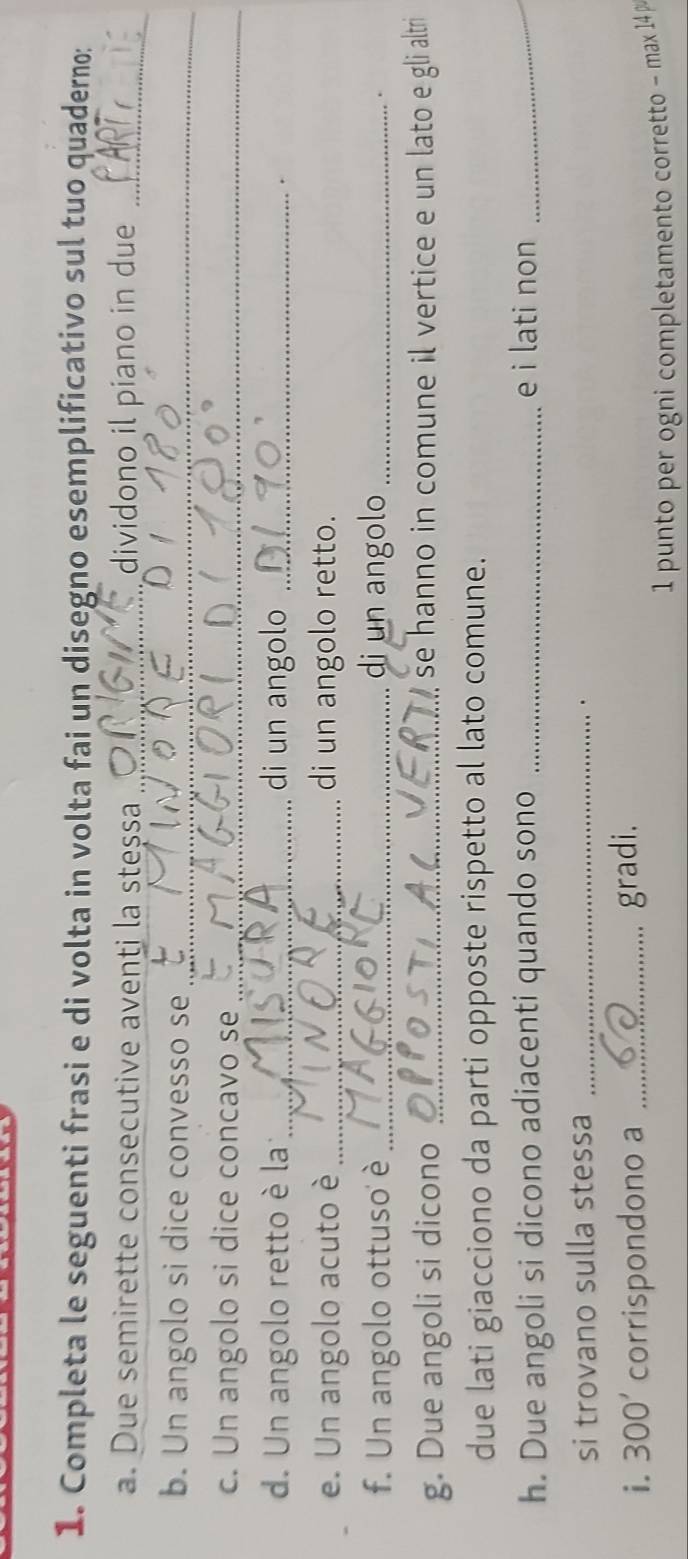 1. Completa le seguenti frasi e di volta in volta fai un disegno esemplificativo sul tuo quaderno:
a. Due semirette consecutive aventi la stessa ORIGINE dividono il piano in due PARTI
b. Un angolo si dice convesso se È MINORE DI 180
c. Un angolo si dice concavo se È MAGGIORI DI 180°
d. Un angolo retto è la MISURA di un angolo DI 90°.
e. Un angolo acuto è MINORE di un angolo retto.
f. Un angolo ottuso è MAGGIORE di un angolo .
g. Due angoli si dicono OPPOSTI AL VERTICE se hanno in comune il vertice e un lato e gli altri
due lati giacciono da parti opposte rispetto al lato comune.
h. Due angoli si dicono adiacenti quando sono e i lati non
si trovano sulla stessa .
i. 300' corrispondono a 60 gradi.
1 punto per ogni completamento corretto - max 14